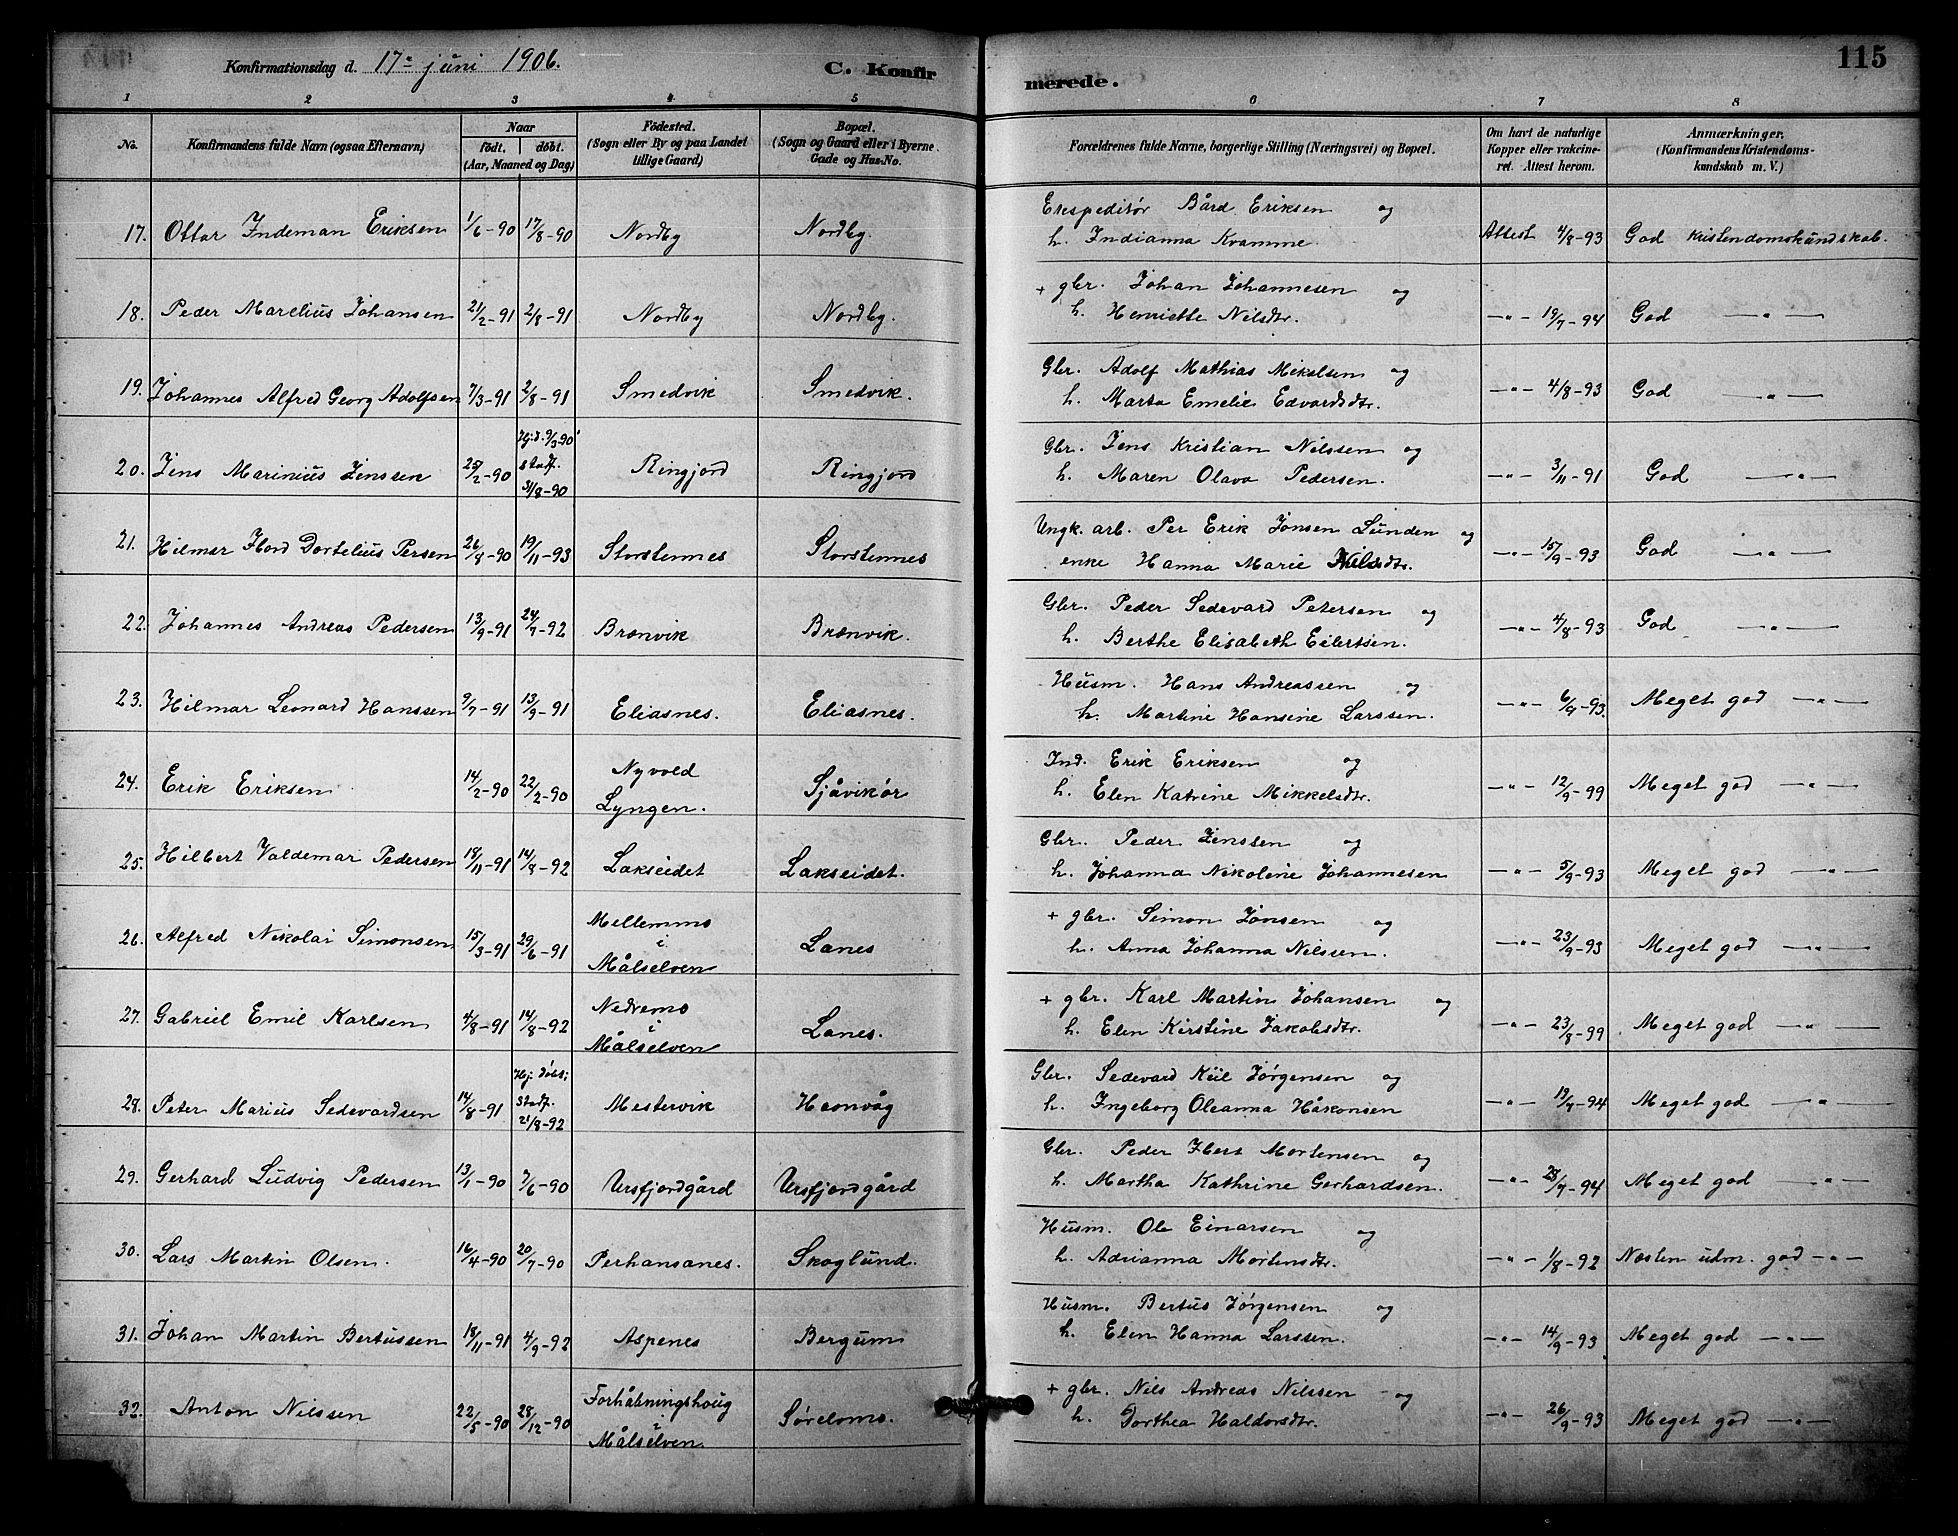 Konfirmationsdag d. 17de juni 1906. C. Konfirmerede. 115
1 2 3 4 5 6 7 8
No. Konfirmandens fulde Navn (ogsaa Efternavn) Naar født. døbt. (Aar, Maaned og Dag) Födested. (Sogn eller By og paa Landet tillige Gaard) Bopæl. (Sogn og Gaard eller i Byerne Gade og Hus-No. Forældrenes fulde Navne, borgerlige Stilling (Næringsvei) og Bopæl. Om havt de naturlige Kopper eller vakcineret. Attest herom. Anmærkninger, (Konfirmandens Kristendomskundskab m. V.)
17. Ottar Indeman Eriksen 1/6-90 17/8-90 Nordby Nordby. Ekspeditør Bård Eriksen og
h. Indianna Kvamme. Attest 4/8-93 God Kristendomskundskab.
18. Peder Marelius Johansen 21/2-91 2/8-91 Nordby Nordby. + gbr. Johan Johannesen og
h. Henriette Nilsdtr. —"— 19/7-94 God —"—
19. Johannes Alfred Georg Adolfsen 7/3-91 2/8-91 Smedvik Smedvik. Gbr. Adolf Mathias Mikelsen og
h. Marta Emelie Edvardsdtr. —"— 4/8-93 God —"—
20. Jens Marinius Jenssen 25/2-90 Hj.d. 9/3-90 stadf. 31/8-90 Ringjord Ringjord Gbr. Jens Kristian Nilssen og
h. Maren Olava Pedersen. —"— 3/11-91 God —"—
21. Hilmar Hord Dortelius Persen 26/8-90 19/11-93 Storstennes Storstennes Ungk. arb. Per Erik Jonsen Lunden og
enke Hanna Marie Nilsdtr. —"— 15/9-93 God —"—
22. Johannes Andreas Pedersen 13/9-91 24/7-92 Brænvik Brænvik. Gbr. Peder Sedevard Petersen og
h. Berthe Elisabeth Eilertsen. —"— 4/8-93 God —"—
23. Hilmar Leonard Hanssen 9/7-91 13/9-91 Eliasnes. Eliasnes. Husm. Hans Andreassen og
h. Martine Hansine Larssen. —"— 6/9-93. Meget god —"—
24. Erik Eriksen 14/2-90 22/2-90 Nyvold Lyngen. Sjåvikør Ind. Erik Eriksen og
h. Elen Katrine Mikkelsdtr. —"— 12/9-99 Meget god —"—
25. Hilbert Valdemar Pedersen 18/11-91 14/8-92 Lakseidet Lakseidet. Gbr. Peder Jenssen og
h. Johanna Nikoline Johannesen —"— 5/9-93 Meget god —"—
26. Alfred Nikolai Simonsen 15/3-91 29/6-91 Mellemmo i Målselven Lanes + gbr. Simon Jonsen og
h. Anna Johanna Nilssen. —"— 23/9-93 Meget god —"—
27. Gabriel Emil Karlsen 4/8-91 14/8-92 Nedremo i Målselven Lanes. + gbr. Karl Martin Johansen og
h. Elen Kirstine Jakobsdtr. —"— 23/8-99 Meget god —"—
28. Peter Marius Sedevardsen 14/8-91 Hj. døbt; stadf. 21/8-92 Mestervik Havnvåg Gbr. Sedevard Kiil Jørgensen og
h. Ingeborg Oleanna Håkonsen —"— 19/7-94 Meget god —"—
29. Gerhard Ludvig Pedersen 13/1-90 7/6-90 Ursfjordgård Ursfjordgård Gbr. Peder Hert Mortensen og
h. Martha Kathrine Gerhardsen. —"— 23/7-94 Meget god —"—
30. Lars Martin Olsen. 16/4-90 20/7-90 Perhansanes. Skoglund. Husm. Ole Einarsen og
h. Adrianna Mortensdtr. —"— 1/8-92 Næsten udm. god —"—
31. Johan Martin Bertussen 18/11-91 4/9-92 Aspenes Bergum Husm. Bertus Jørgensen og
h. Elen Hanna Larssen. —"— 14/9-93 Meget god —"—
32. Anton Nilssen 22/5-90 28/12-90 Forhåbningshoug i Målselven Sørelomo. + gbr. Nils Andreas Nilssen - og
h. Dorthea Haldorsdtr. —"— 26/9-93 Meget god —"—